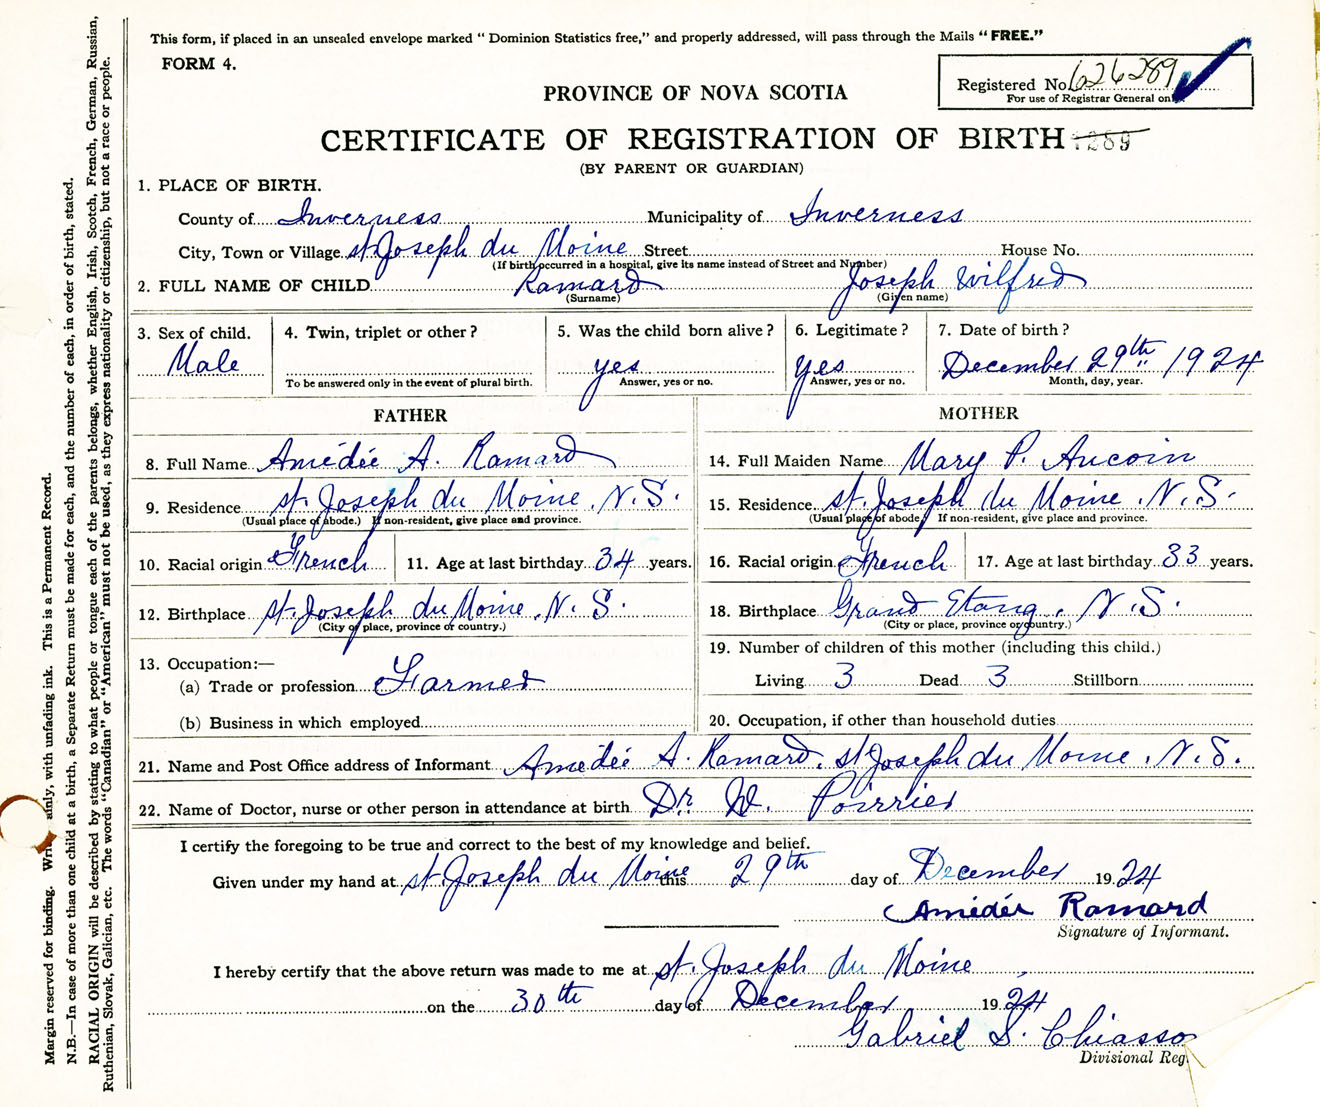 This form, if placed in an unsealed envelope marked “ Dominion Statistics free,” and properly addressed, will pass through the Mails “ FREE.”
FORM 4.
Registered No. 626289
For use of Registrar General only
PROVINCE OF NOVA SCOTIA
CERTIFICATE OF REGISTRATION OF BIRTH 1289
(BY PARENT OR GUARDIAN)
1. PLACE OF BIRTH.
County of Inverness Municipality of Inverness
City, Town or Village St. Joseph du Moine Street House No.
(If birth occurred in a hospital, give its name instead of Street and Number)
2. FULL NAME OF CHILD Ramard Joseph Wilfred
(Surname) (Given name)
3. Sex of child. 4. Twin, triplet or other ? 5. Was the child born alive ? 6. Legitimate ? 7. Date of birth ?
Male yes yes December 29th 1924
To be answered only in the event of plural birth. Answer, yes or no. Answer, yes or no. Month, day, year.
FATHER
8. Full Name Amédée A. Ramard
9. Residence St. Joseph du Moine, N.S.
(Usual place of abode.) If non-resident, give place and province.
10. Racial origin French 11. Age at last birthday 34 years.
12. Birthplace St. Joseph du Moine, N.S.
(City or place, province or country.)
13. Occupation:—
(a) Trade or profession Farmer
(b) Business in which employed
MOTHER
14. Full Maiden Name Mary P. Aucoin
15. Residence St. Joseph du Moine, N.S.
(Usual place of abode) If non-resident, give place and province.
16. Racial origin French 17. Age at last birthday 33 years.
18. Birthplace Grand Etang, N.S.
(City or place, province or country.)
19. Number of children of this mother (including this child.)
Living 3 Dead 3 Stillborn
20. Occupation, if other than household duties
21. Name and Post Office address of Informant Amédée A. Ramard, St. Joseph du Moine, N.S.
22. Name of Doctor, nurse or other person in attendance at birth Dr. W. Poirrier
I certify the foregoing to be true and correct to the best of my knowledge and belief.
Given under my hand at St. Joseph du Moine this 29th day of December 1924
Amédée Ramard
Signature of Informant.
I hereby certify that the above return was made to me at St. Joseph du Moine
on the 30th day of December 1924
Gabriel S. Chiasso
Divisional Reg.
Margin reserved for binding. Write plainly, with unfading ink. This is a Permanent Record.
N.B.—In case of more than one child at a birth, a Separate Return must be made for each, and the number of each, in order of birth, stated.
RACIAL ORIGIN will be described by stating to what people or tongue each of the parents belongs, whether English, Irish, Scotch, French, German, Russian,
Ruthenian, Slovak, Galician, etc. The words “Canadian” or “American” must not be used, as they express nationality or citizenship, but not a race or people.